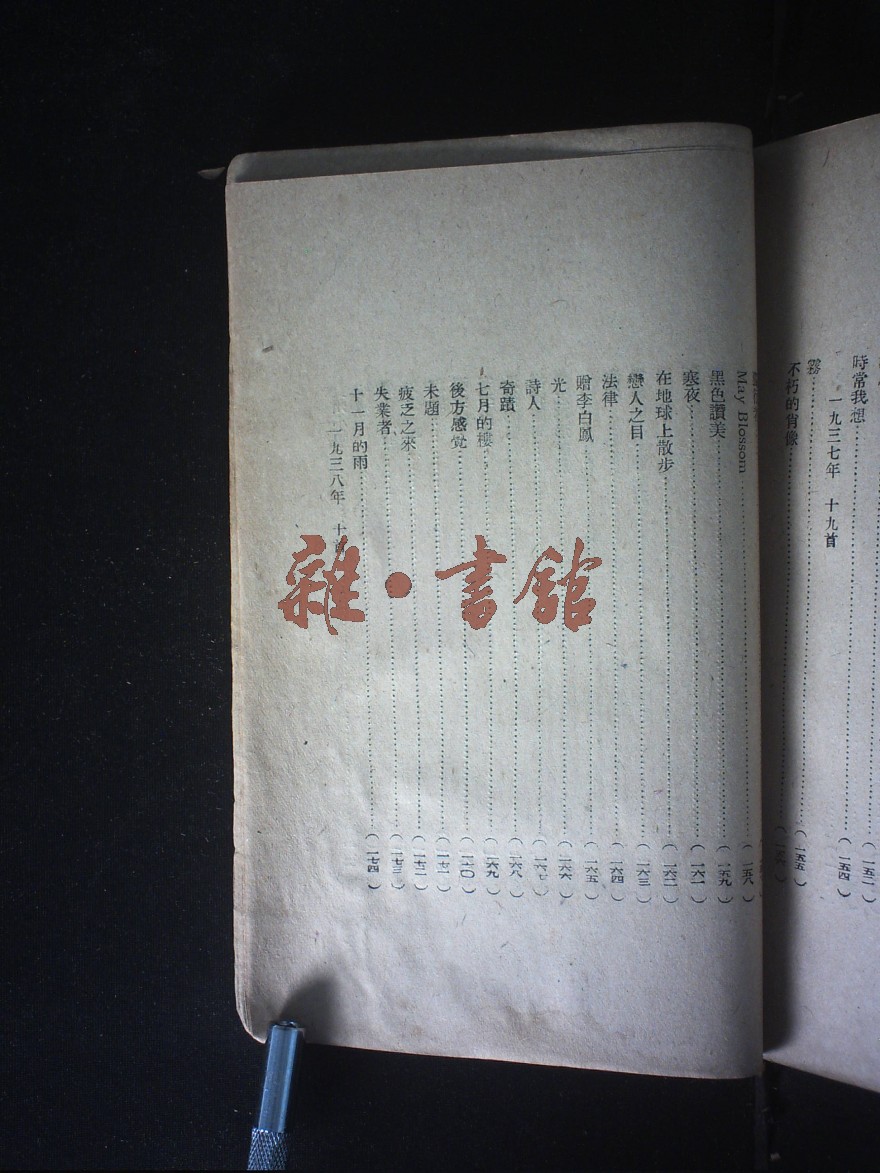 時常我想……（一五四）
一九三七年　十九首
霧……（一五五）
不朽的肖像……
May Blossom……（一五八）
黑色讚美……（一五九）
寒夜……（一六一）
在地球上散步……（一六二）
戀人之目……（一六三）
法律……（一六四）
贈李白鳳……（一六五）
光……（一六六）
詩人……（一六七）
奇蹟……（一六八）
七月的樓……（一六九）
後方感觉……（一七〇）
未題……（一七一）
疲乏之來……（一七二）
失業者……（一七三）
十一月的雨……（一七四）
一九三八年　十
雜·書館